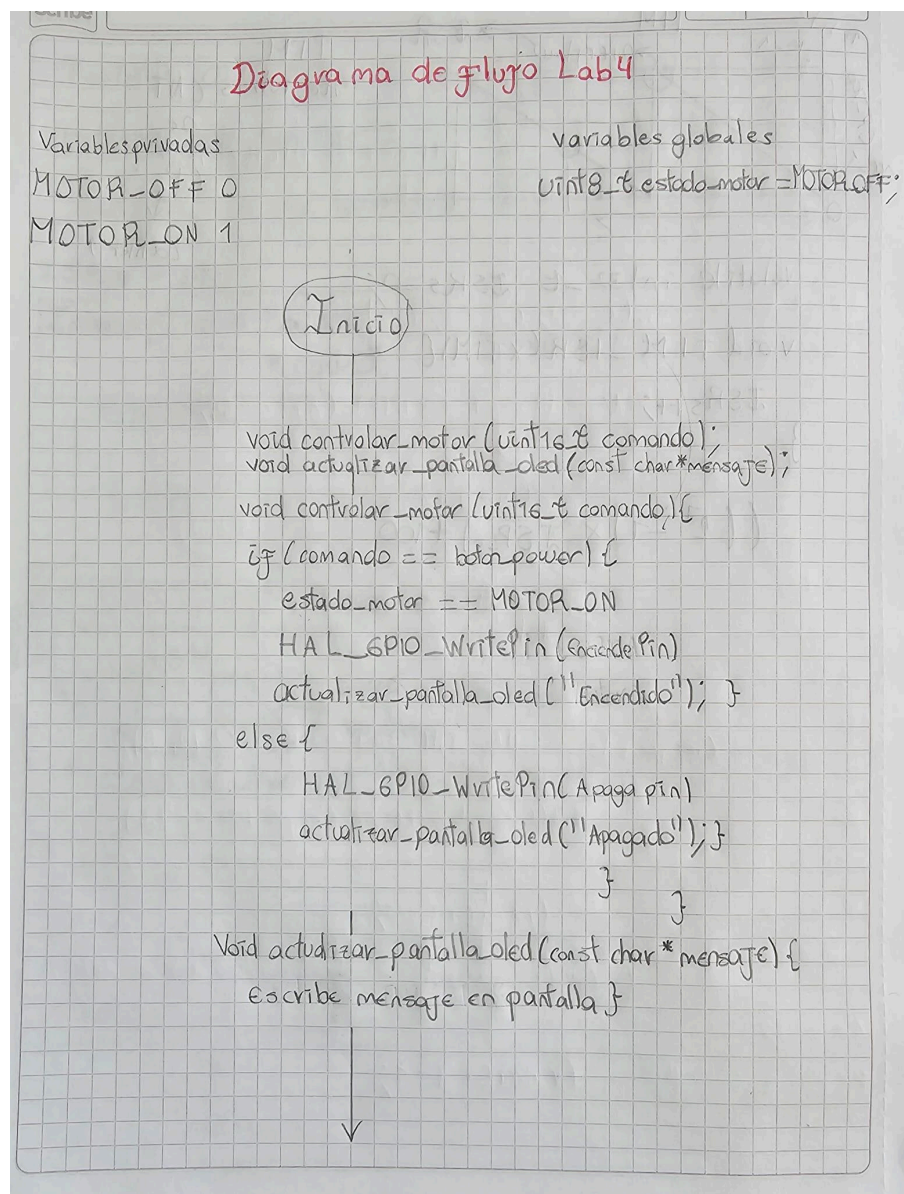 Scribe
Diagrama de flujo Lab4
Variables privadas
variables globales
MOTOR_OFF 0
uint8_t estado_motor = MOTOR_OFF;
MOTOR_ON 1
Inicio
void controlar_motor (uint16_t comando);
void actualizar_pantalla_oled (const char*mensaje);
void controlar_motor (uint16_t comando){
if (comando == boton power) {
estado_motor == MOTOR_ON
HAL_GPIO_WritePin (Enciende Pin)
actualizar_pantalla_oled ("Encendido"); }
else {
HAL_GPIO_WritePin( Apaga pin)
actualizar_pantalla_oled ("Apagado"); }
}
}
Void actualizar_pantalla_oled (const char * mensaje) {
Escribe mensaje en pantalla }